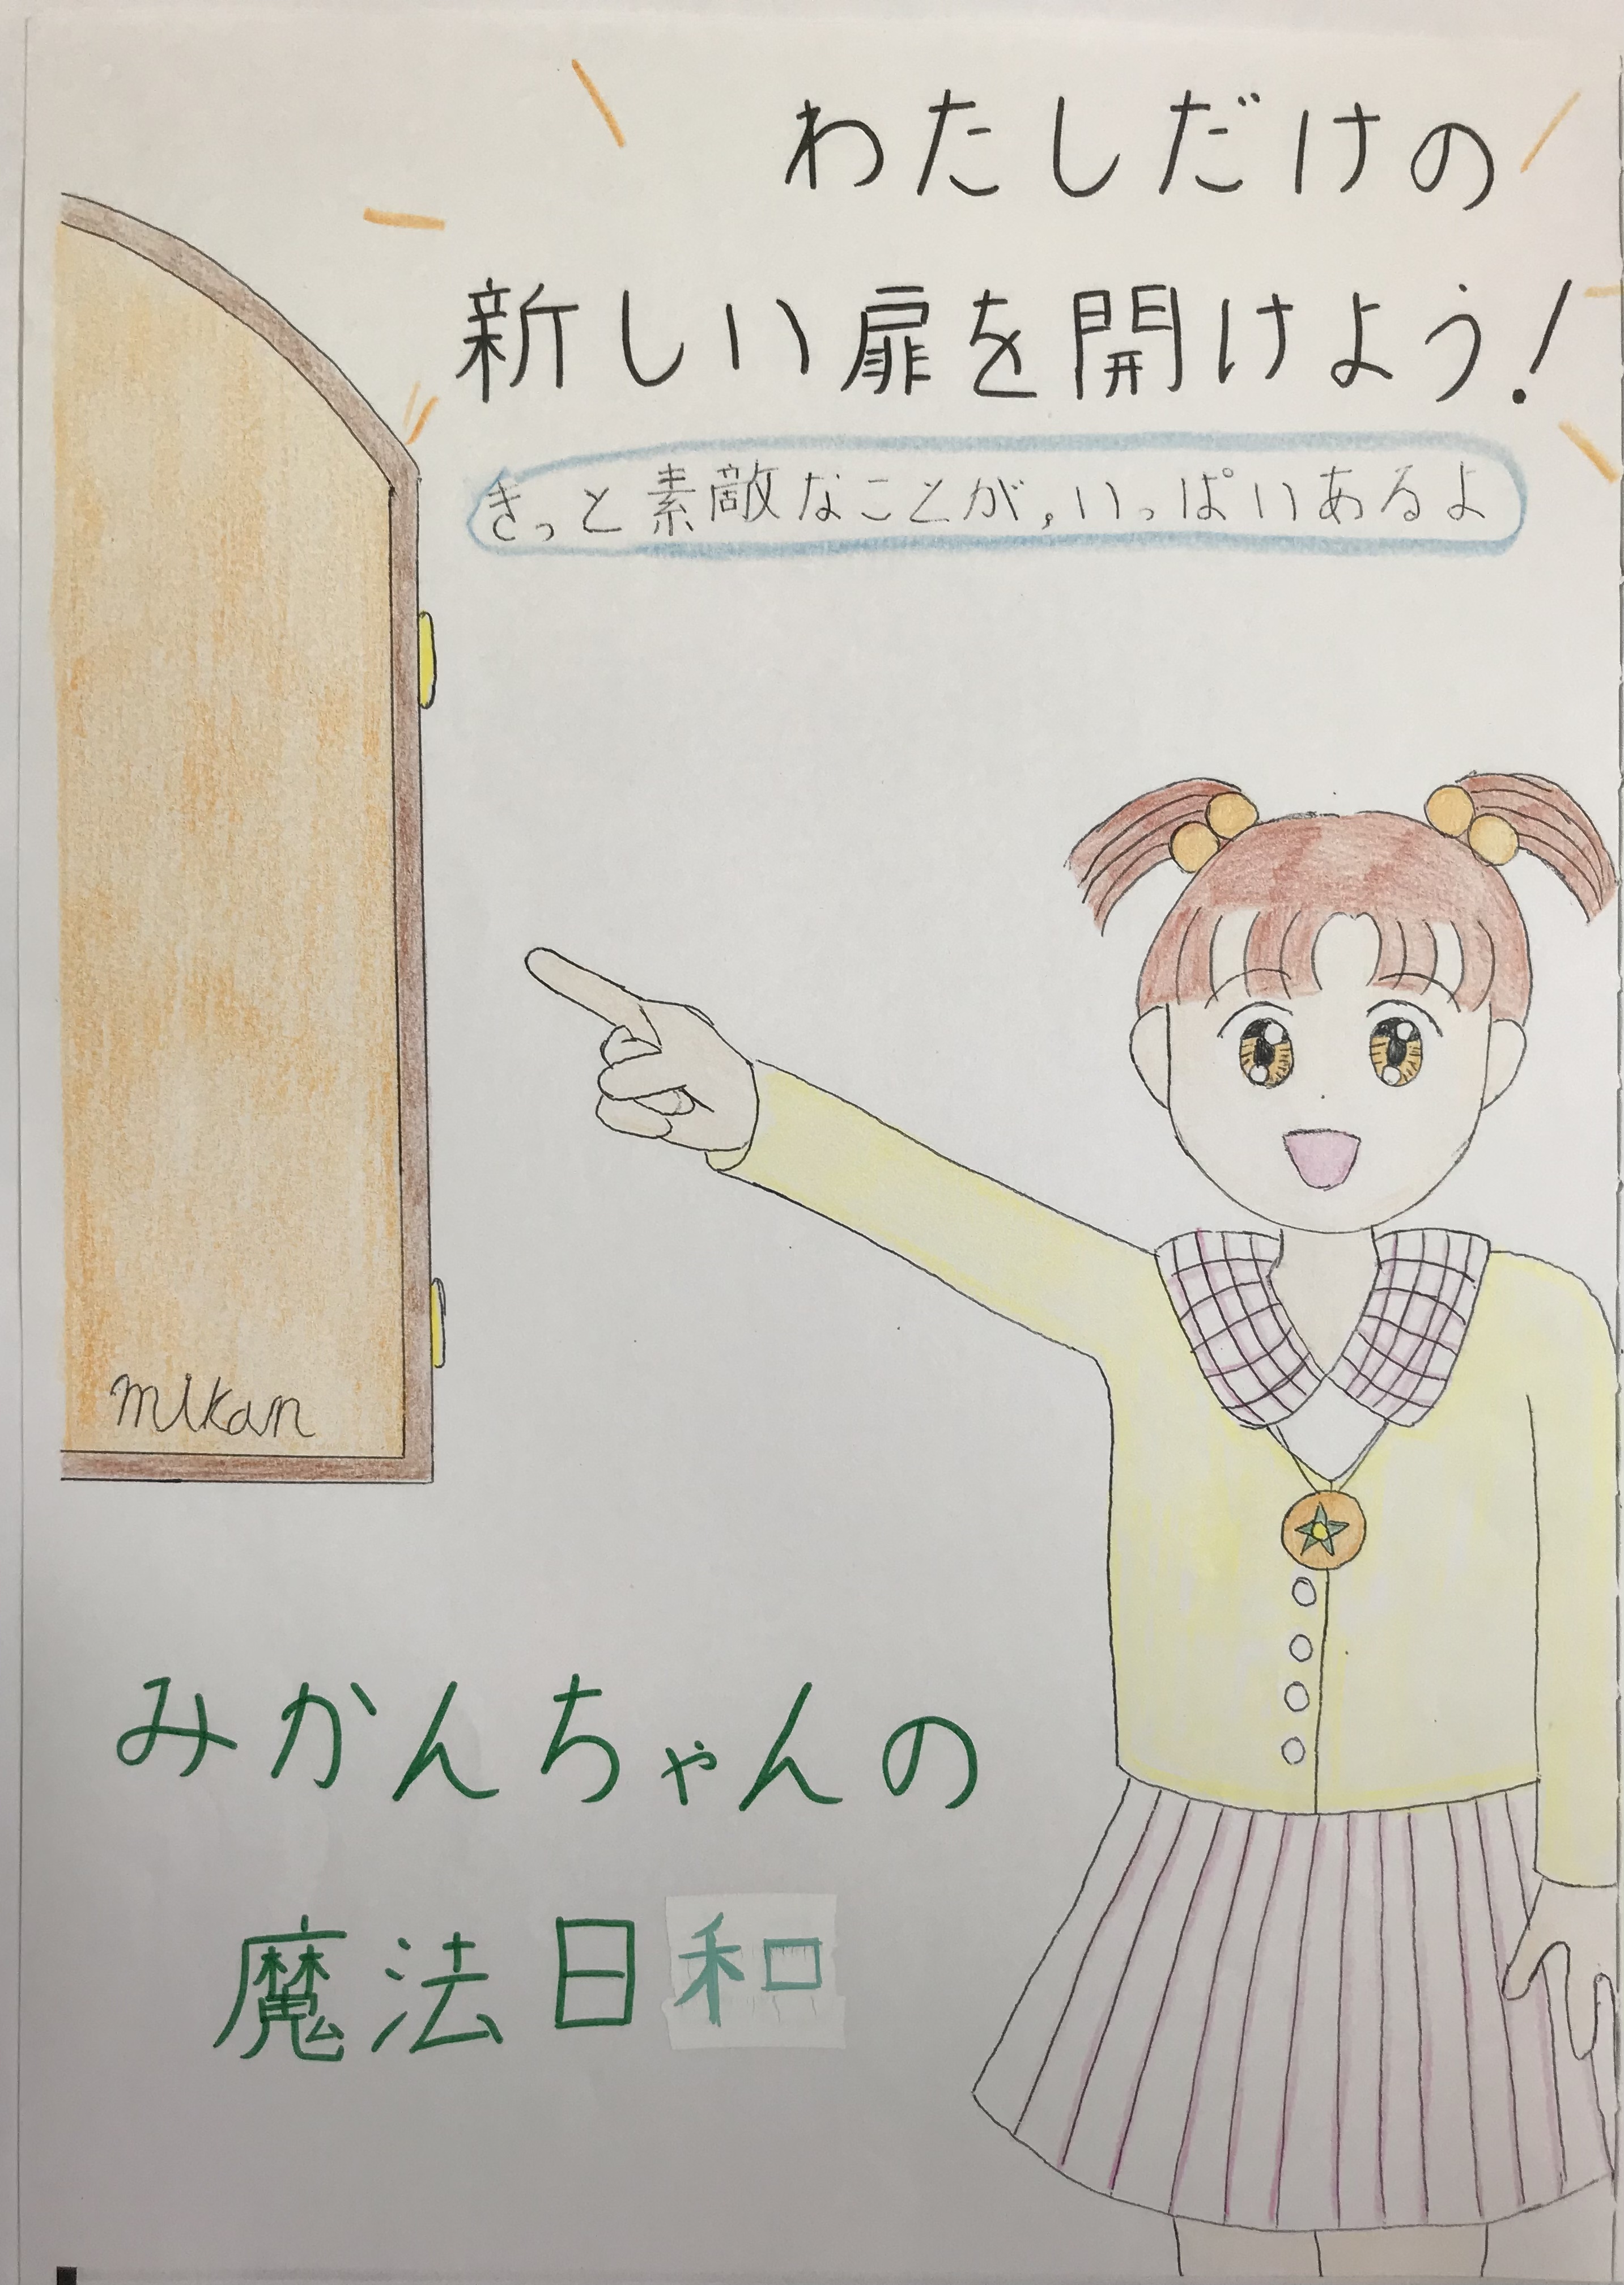 わたしだけの
新しい扉を開けよう!
きっと素敵なことが,いっぱいあるよ
mikan
みかんちゃんの
魔法日和